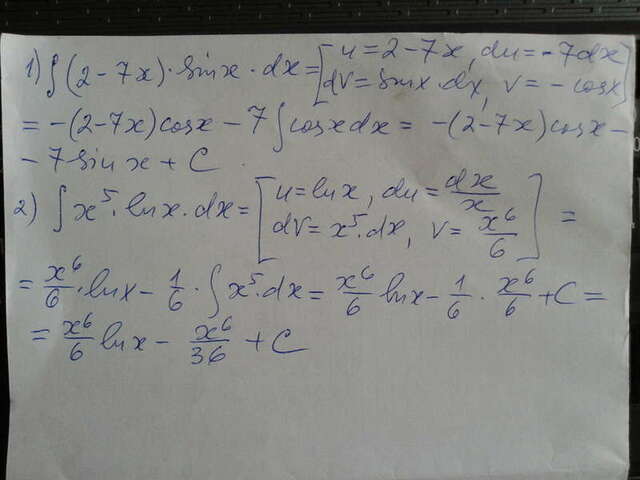 1) ∫(2-7x)·sinx·dx = [u=2-7x, du=-7dx
dv=sinx dx, v=-cosx]
= -(2-7x)cosx - 7∫cosxdx = -(2-7x)cosx -
- 7·sinx + C.
2) ∫x⁵·lnx·dx = [u=lnx, du=dx/x
dv=x⁵·dx, v=x⁶/6] =
= x⁶/6·lnx - 1/6·∫x⁵·dx = x⁶/6 lnx - 1/6·x⁶/6 + C =
= x⁶/6 lnx - x⁶/36 + C